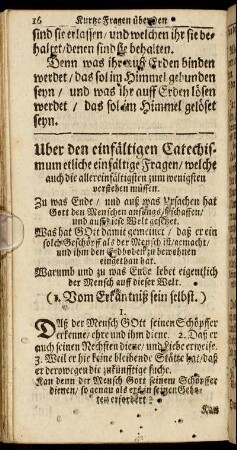 16 Kurtze Fragen über den
sind sie erlassen / und welchen ihr sie be-
haltet / denen sind sie behalten.
Denn was ihr auff Erden binden
werdet / das sol im Himmel gebunden
seyn / und was ihr auff Erden lösen
werdet / das sol im Himmel gelöset
seyn.
Uber den einfältigen Catechis-
mum etliche einfältige Fragen / welche
auch die allereinfältigsten zum wenigsten
verstehen müssen.
Zu was Ende / und auß was Ursachen hat
Gott den Menschen anfangs erschaffen /
und auff diese Welt gesetzet.
Was hat GOtt damit gemeinet / daß er ein
solch Geschöpff als der Mensch ist / gemacht /
und ihm den Erdboden zu bewohnen
eingethan hat.
Warumb und zu was Ende lebet eigentlich
der Mensch auff dieser Welt.
(1. Vom Erkäntniß sein selbst.)
1.
Daß der Mensch GOtt seinen Schöpffer
erkenne / ehre und ihm diene. 2. Daß er
auch seinen Nechsten diene / und Liebe erweise.
3. Weil er hie keine bleibende Stätte hat / daß
er derowegen die zukünfftige suche.
Kan denn der Mensch Gott seinem Schöpffer
dienen / so genau als er in seinen Gebo-
ten erfordert?
Kan